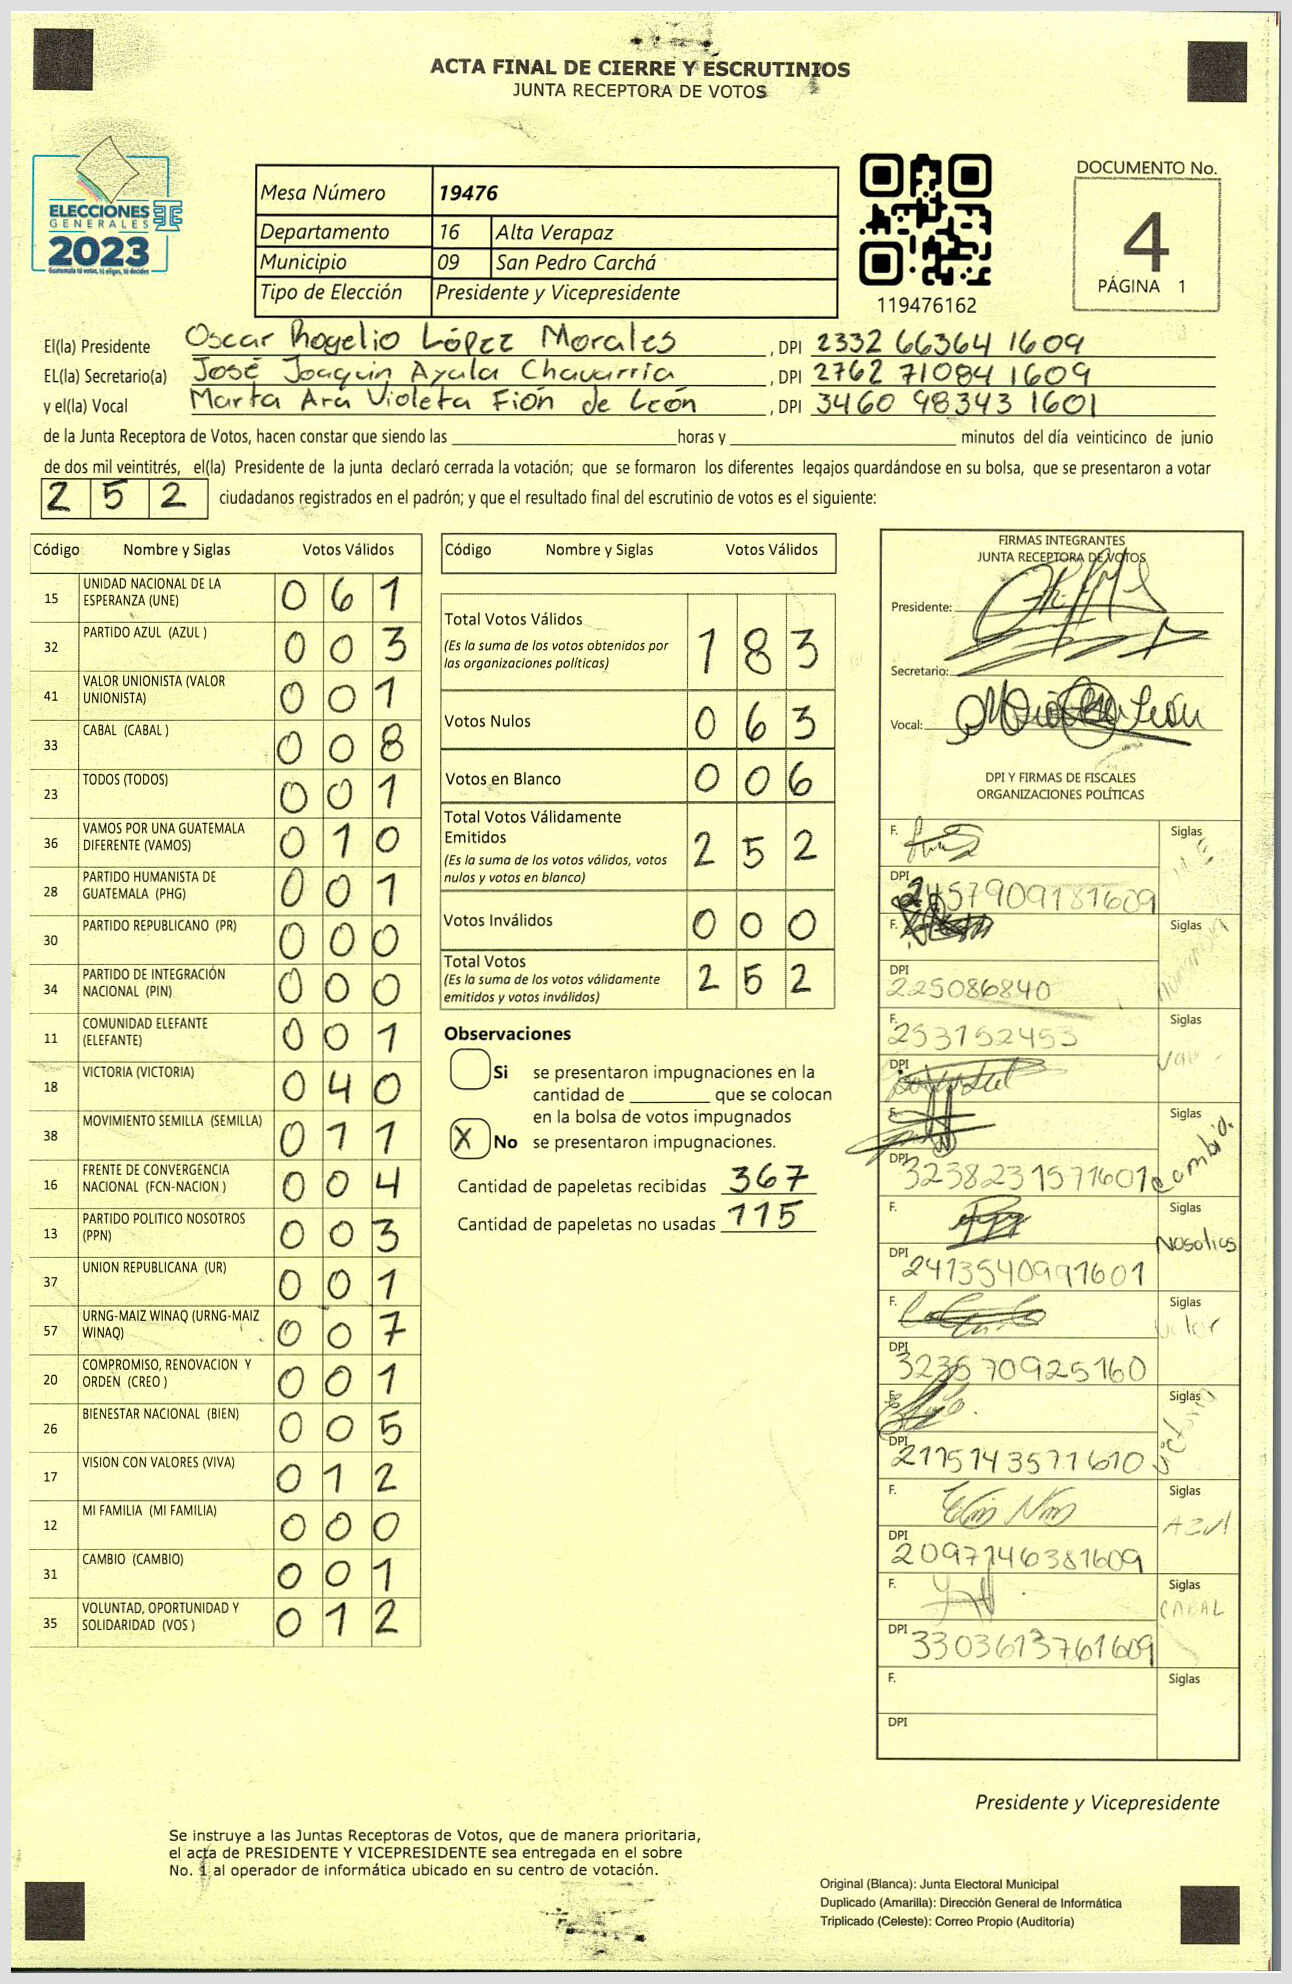 ACTA FINAL DE CIERRE Y ESCRUTINIOS
JUNTA RECEPTORA DE VOTOS
ELECCIONES
GENERALES
2023
Guatemala tú votas, tú eliges, tú decides
Mesa Número 19476
Departamento 16 Alta Verapaz
Municipio 09 San Pedro Carchá
Tipo de Elección Presidente y Vicepresidente
119476162
DOCUMENTO No.
4
PÁGINA 1
El(la) Presidente Oscar Rogelio López Morales , DPI 2332 66364 1609
EL(la) Secretario(a) José Joaquin Ayala Chavarria , DPI 2762 71084 1609
y el(la) Vocal Marta Ara Violeta Fión de León , DPI 3460 98343 1601
de la Junta Receptora de Votos, hacen constar que siendo las horas y minutos del día veinticinco de junio
de dos mil veintitrés, el(la) Presidente de la junta declaró cerrada la votación; que se formaron los diferentes legajos guardándose en su bolsa, que se presentaron a votar
252 ciudadanos registrados en el padrón; y que el resultado final del escrutinio de votos es el siguiente:
Código Nombre y Siglas Votos Válidos
15 UNIDAD NACIONAL DE LA ESPERANZA (UNE) 061
32 PARTIDO AZUL (AZUL ) 003
41 VALOR UNIONISTA (VALOR UNIONISTA) 001
33 CABAL (CABAL ) 008
23 TODOS (TODOS) 001
36 VAMOS POR UNA GUATEMALA DIFERENTE (VAMOS) 010
28 PARTIDO HUMANISTA DE GUATEMALA (PHG) 001
30 PARTIDO REPUBLICANO (PR) 000
34 PARTIDO DE INTEGRACIÓN NACIONAL (PIN) 000
11 COMUNIDAD ELEFANTE (ELEFANTE) 001
18 VICTORIA (VICTORIA) 040
38 MOVIMIENTO SEMILLA (SEMILLA) 011
16 FRENTE DE CONVERGENCIA NACIONAL (FCN-NACION ) 004
13 PARTIDO POLITICO NOSOTROS (PPN) 003
37 UNION REPUBLICANA (UR) 001
57 URNG-MAIZ WINAQ (URNG-MAIZ WINAQ) 007
20 COMPROMISO, RENOVACION Y ORDEN (CREO ) 001
26 BIENESTAR NACIONAL (BIEN) 005
17 VISION CON VALORES (VIVA) 012
12 MI FAMILIA (MI FAMILIA) 000
31 CAMBIO (CAMBIO) 001
35 VOLUNTAD, OPORTUNIDAD Y SOLIDARIDAD (VOS ) 012
Código Nombre y Siglas Votos Válidos
Total Votos Válidos 183
(Es la suma de los votos obtenidos por
las organizaciones políticas)
Votos Nulos 063
Votos en Blanco 006
Total Votos Válidamente
Emitidos 252
(Es la suma de los votos válidos, votos
nulos y votos en blanco)
Votos Inválidos 000
Total Votos 252
(Es la suma de los votos válidamente
emitidos y votos inválidos)
Observaciones
Si se presentaron impugnaciones en la
cantidad de que se colocan
en la bolsa de votos impugnados
X No se presentaron impugnaciones.
Cantidad de papeletas recibidas 367
Cantidad de papeletas no usadas 115
FIRMAS INTEGRANTES
JUNTA RECEPTORA DE VOTOS
Presidente:
Secretario:
Vocal:
DPI Y FIRMAS DE FISCALES
ORGANIZACIONES POLÍTICAS
F. Siglas
DPI 2457909181609
F. Siglas
DPI 225086840
F. 253152453 Siglas
DPI
F. Siglas Cambio.
DPI 3238231571601
F. Siglas Nosotros
DPI 2413540991601
F. Siglas Valor
DPI 323570925160
F. Siglas Victoria
DPI 2115143571610
F. Siglas AZUL
DPI 2097146381609
F. Siglas CABAL
DPI 3303613761609
F. Siglas
DPI
Presidente y Vicepresidente
Se instruye a las Juntas Receptoras de Votos, que de manera prioritaria,
el acta de PRESIDENTE Y VICEPRESIDENTE sea entregada en el sobre
No. 1 al operador de informática ubicado en su centro de votación.
Original (Blanca): Junta Electoral Municipal
Duplicado (Amarilla): Dirección General de Informática
Triplicado (Celeste): Correo Propio (Auditoría)